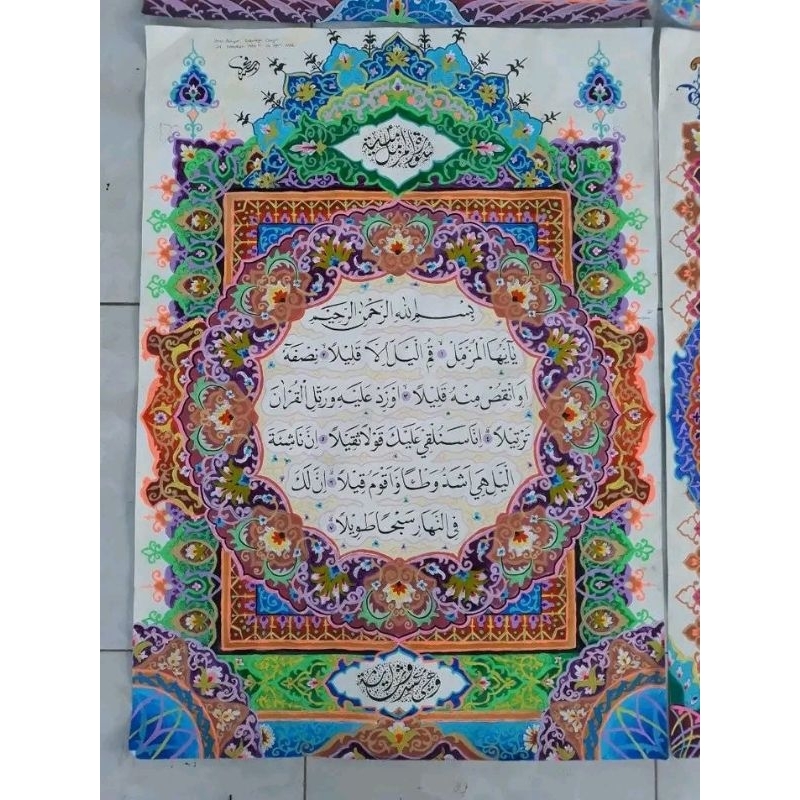 سورة المزمل مكية
بسم الله الرحمن الرحيم
يايها المزمل ۱ قم اليل الا قليلا ۲ نصفه
او انقص منه قليلا ۳ او زد عليه ورتل القران
ترتيلا ٤ انا سنلقي عليك قولا ثقيلا ٥ ان ناشئة
اليل هي اشد وطا واقوم قيلا ٦ ان لك
في النهار سبحا طويلا ۷
وهي عشرون اية